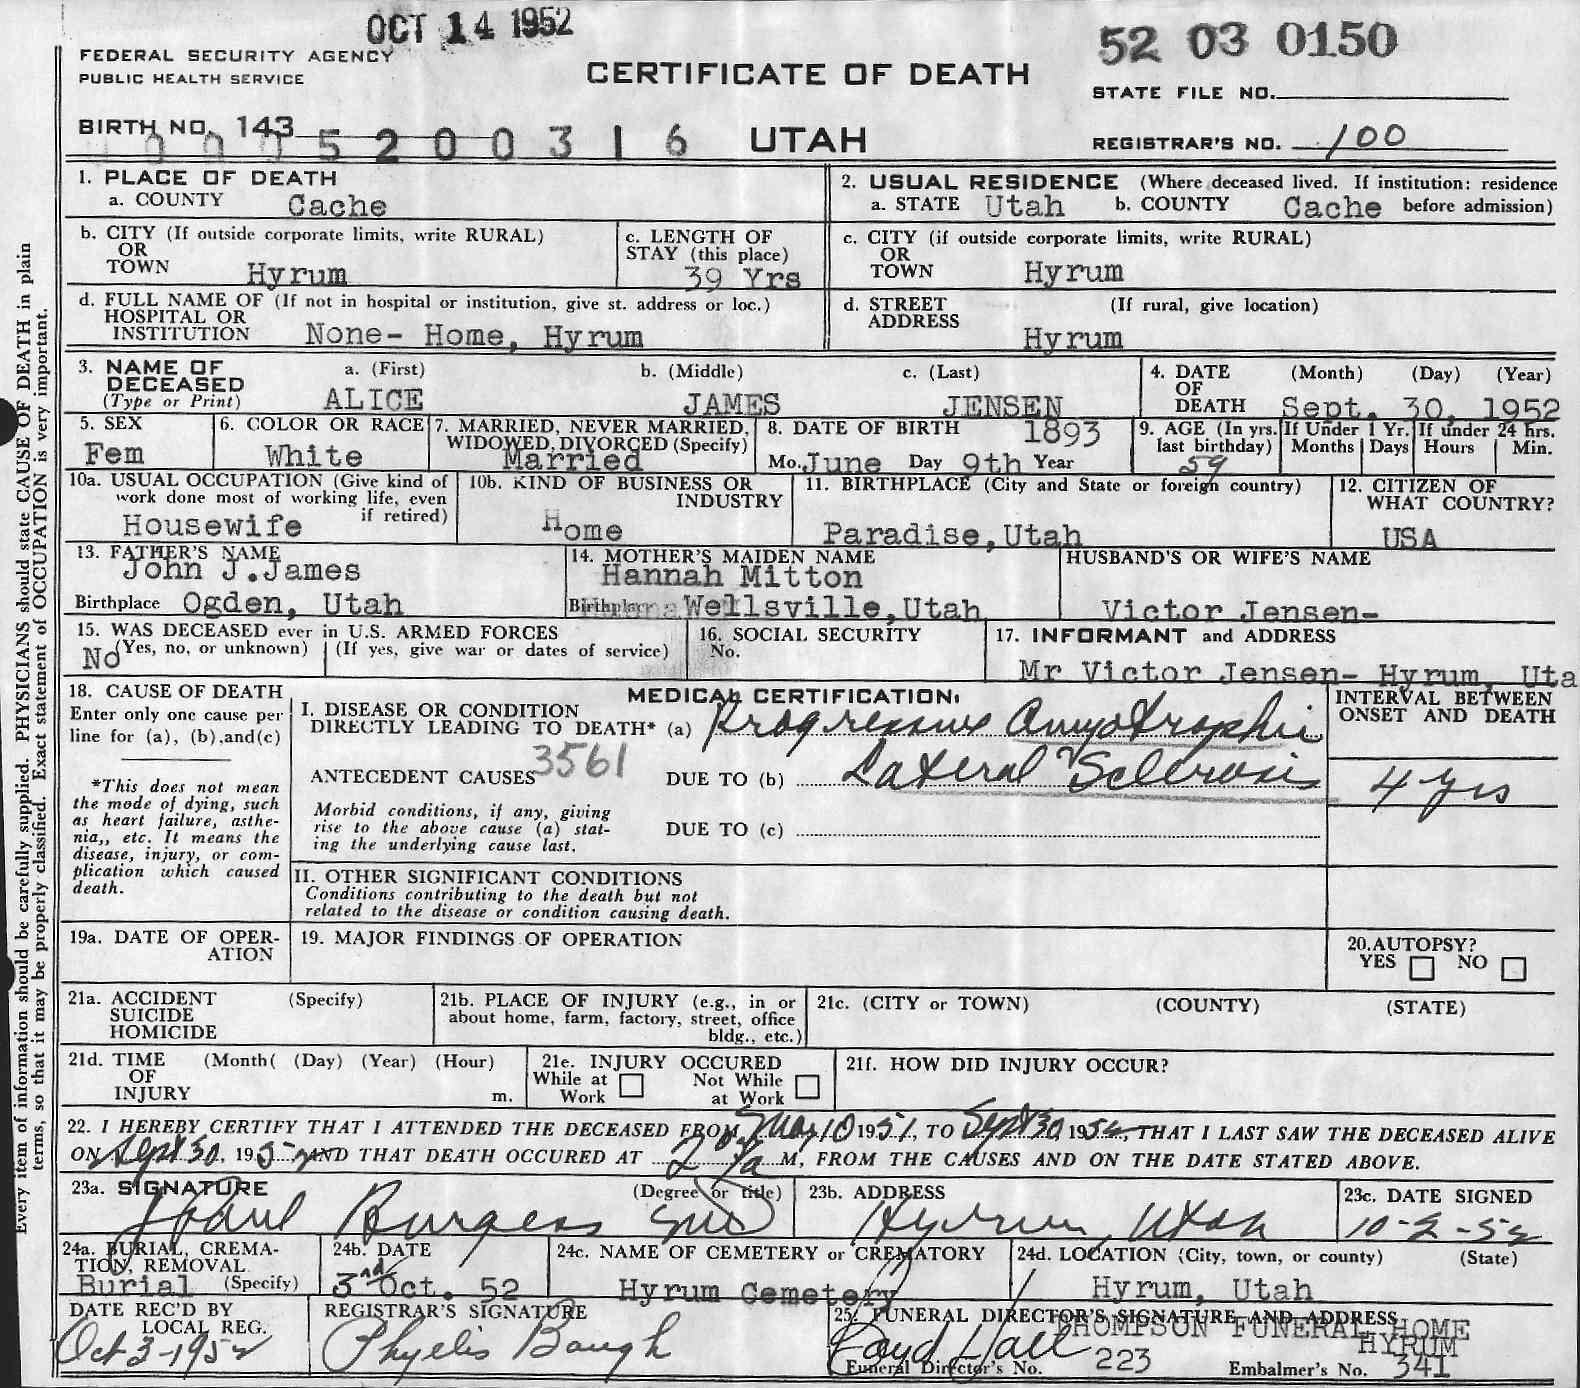 OCT 14 1952
FEDERAL SECURITY AGENCY
PUBLIC HEALTH SERVICE
CERTIFICATE OF DEATH
52 03 0150
STATE FILE NO.
BIRTH NO. 143
5 2 0 0 3 1 6
UTAH
REGISTRAR'S NO. 100
1. PLACE OF DEATH
a. COUNTY Cache
2. USUAL RESIDENCE (Where deceased lived. If institution: residence
a. STATE Utah b. COUNTY Cache before admission)
b. CITY (If outside corporate limits, write RURAL)
OR
TOWN Hyrum
c. LENGTH OF
STAY (this place)
39 Yrs
c. CITY (if outside corporate limits, write RURAL)
OR
TOWN Hyrum
d. FULL NAME OF (If not in hospital or institution, give st. address or loc.)
HOSPITAL OR
INSTITUTION None- Home, Hyrum
d. STREET (If rural, give location)
ADDRESS
Hyrum
3. NAME OF
DECEASED
(Type or Print)
a. (First) b. (Middle) c. (Last)
ALICE JAMES JENSEN
4. DATE (Month) (Day) (Year)
OF
DEATH Sept. 30, 1952
5. SEX
Fem
6. COLOR OR RACE
White
7. MARRIED, NEVER MARRIED,
WIDOWED, DIVORCED (Specify)
Married
8. DATE OF BIRTH 1893
Mo. June Day 9th Year
9. AGE (In yrs.
last birthday)
59
If Under 1 Yr.
Months Days
If under 24 hrs.
Hours Min.
10a. USUAL OCCUPATION (Give kind of
work done most of working life, even
if retired)
Housewife
10b. KIND OF BUSINESS OR
INDUSTRY
Home
11. BIRTHPLACE (City and State or foreign country)
Paradise,Utah
12. CITIZEN OF
WHAT COUNTRY?
USA
13. FATHER'S NAME
John J.James
Birthplace Ogden, Utah
14. MOTHER'S MAIDEN NAME
Hannah Mitton
Birthplace Wellsville,Utah
HUSBAND'S OR WIFE'S NAME
Victor Jensen-
15. WAS DECEASED ever in U.S. ARMED FORCES
No (Yes, no, or unknown) (If yes, give war or dates of service)
16. SOCIAL SECURITY
No.
17. INFORMANT and ADDRESS
Mr Victor Jensen- Hyrum, Uta
18. CAUSE OF DEATH
Enter only one cause per
line for (a), (b),and(c)
*This does not mean
the mode of dying, such
as heart failure, asthe-
nia,, etc. It means the
disease, injury, or com-
plication which caused
death.
MEDICAL CERTIFICATION:
I. DISEASE OR CONDITION
DIRECTLY LEADING TO DEATH* (a) Progressive Amyotrophic
3561
ANTECEDENT CAUSES DUE TO (b) Lateral Sclerosis
Morbid conditions, if any, giving
rise to the above cause (a) stat-
ing the underlying cause last.
DUE TO (c)
INTERVAL BETWEEN
ONSET AND DEATH
4 yrs
II. OTHER SIGNIFICANT CONDITIONS
Conditions contributing to the death but not
related to the disease or condition causing death.
19a. DATE OF OPER-
ATION
19. MAJOR FINDINGS OF OPERATION
20.AUTOPSY?
YES NO
21a. ACCIDENT (Specify)
SUICIDE
HOMICIDE
21b. PLACE OF INJURY (e.g., in or
about home, farm, factory, street, office
bldg., etc.)
21c. (CITY or TOWN) (COUNTY) (STATE)
21d. TIME (Month( (Day) (Year) (Hour)
OF
INJURY m.
21e. INJURY OCCURED
While at Work
Not While at Work
21f. HOW DID INJURY OCCUR?
22. I HEREBY CERTIFY THAT I ATTENDED THE DECEASED FROM May 10 1951, TO Sept 30, 1952, THAT I LAST SAW THE DECEASED ALIVE
ON Sept 30, 1952 AND THAT DEATH OCCURED AT M, FROM THE CAUSES AND ON THE DATE STATED ABOVE.
23a. SIGNATURE (Degree or title)
Burgess MD
23b. ADDRESS
Hyrum, Utah
23c. DATE SIGNED
10-2-52
24a. BURIAL, CREMA-
TION, REMOVAL
Burial (Specify)
24b. DATE
3rd Oct. 52
24c. NAME OF CEMETERY or CREMATORY
Hyrum Cemetery
24d. LOCATION (City, town, or county) (State)
Hyrum, Utah
DATE REC'D BY
LOCAL REG.
Oct 3-1952
REGISTRAR'S SIGNATURE
Phyllis Baugh
25. FUNERAL DIRECTOR'S SIGNATURE AND ADDRESS
Boyd Hall THOMPSON FUNERAL HOME
HYRUM
Funeral Director's No. 223 Embalmer's No. 341
Every item of information should be carefully supplied. PHYSICIANS should state CAUSE OF DEATH in plain
terms, so that it may be properly classified. Exact statement of OCCUPATION is very important.